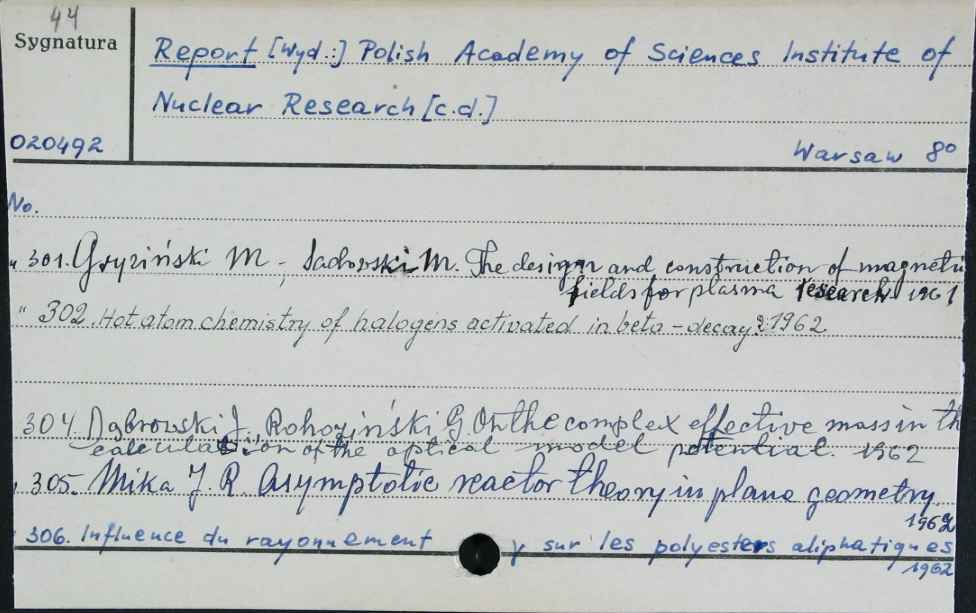 44
Sygnatura
Report [Wyd.:] Polish Academy of Sciences Institute of
Nuclear Research [c.d.]
020492
Warsaw 8°
No.
" 301. Gryziński M - Sadowski M. The design and construction of magneti
fields for plasma research 1961
" 302. Hot atom chemistry of halogens activated in beta - decay. 1962
304. Dąbrowski J. Rohoziński G. On the complex effective mass in th
calculation of the optical model potential. 1962
305. Mika J R. Asymptotic reactor theory in plane geometry
1962
306. Influence du rayonnement γ sur les polyesters aliphatiques
1962